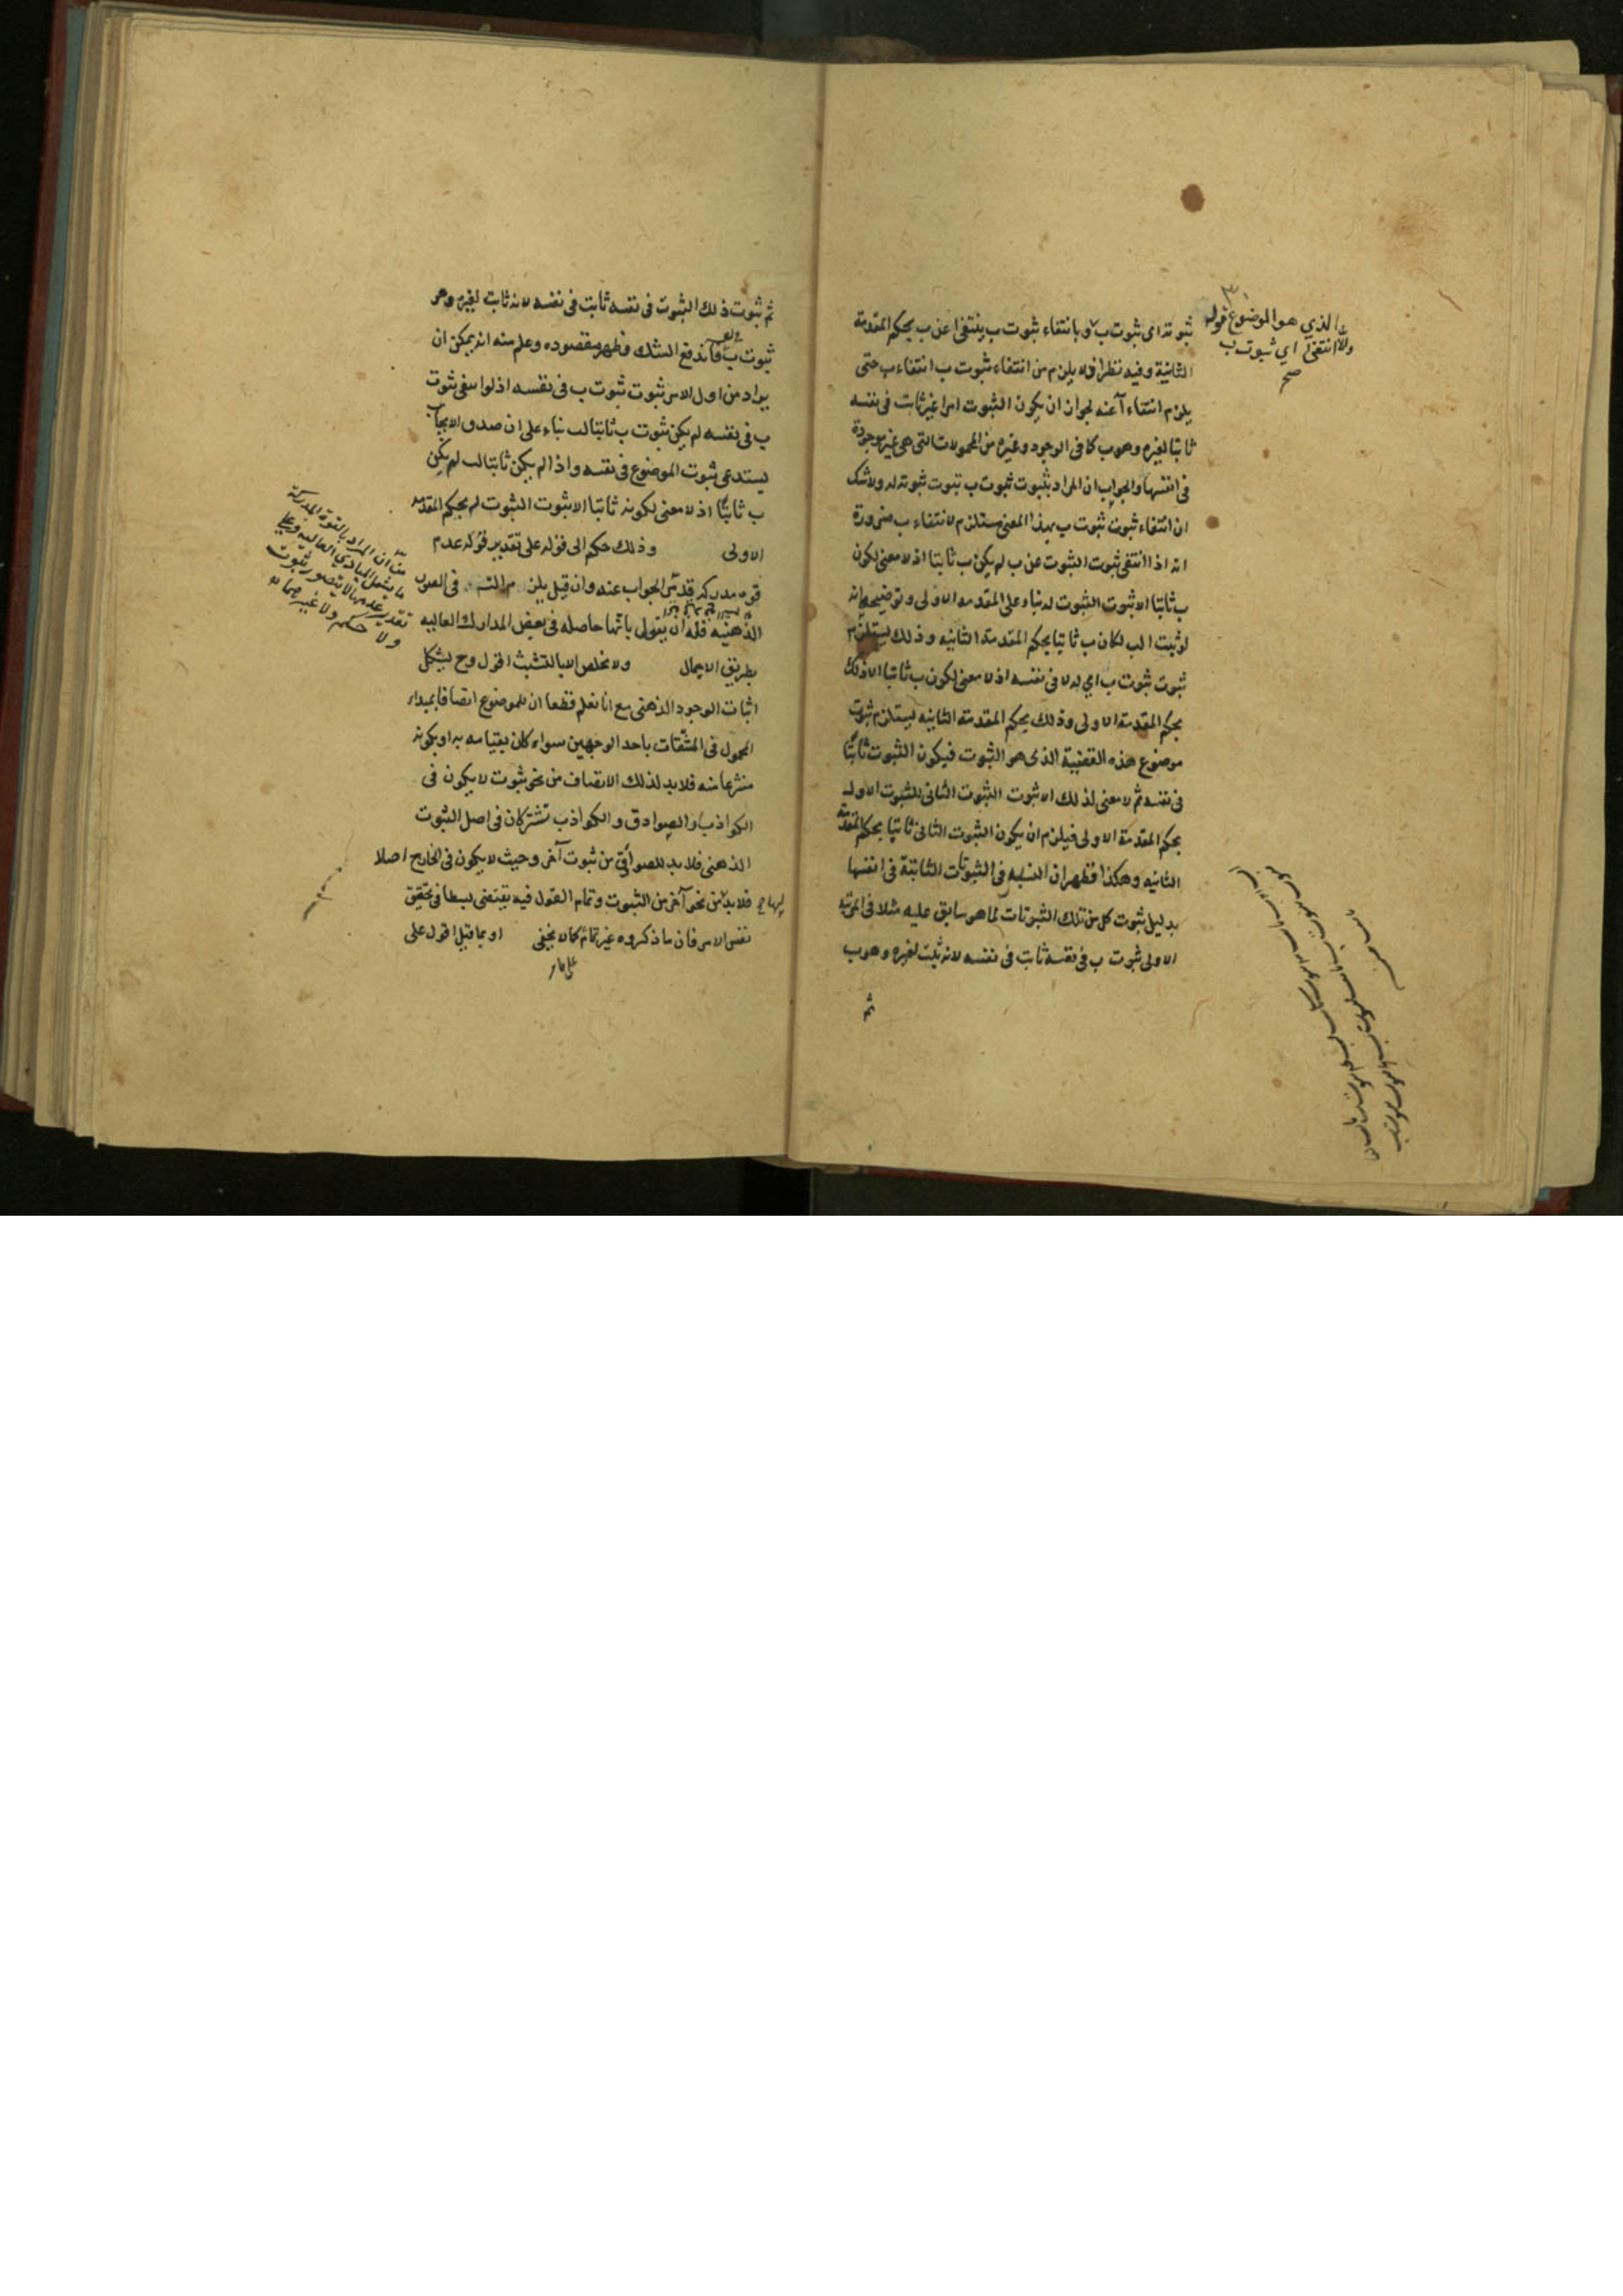 ثبوته اى ثبوت ب و بانتفاء ثبوت ب ينتفى ا عن ب بحكم المقدمة
الثانية وفيه نظر اذ لا يلزم من انتفاء ثبوت ب انتفاء ب حتى
يلزم انتفاء آ عنه لجواز ان يكون الثبوت امرا غير ثابت فى نفسه
ثابتا لغيره وهو ب كما فى الوجود وغيره من المحمولات التى هى غير موجودة
فى انفسها والجواب ان المراد بثبوت ثبوت ب ثبوت ثبوته له ولا شك
ان انتفاء ثبوت ثبوت ب بهذا المعنى مستلزم لانتفاء ب ضرورة
انه اذا انتفى ثبوت الثبوت عن ب لم يكن ب ثابتا اذ لا معنى لكون
ب ثابتا الا ثبوت الثبوت له بناء على المقدمه الاولى وتوضيحه انه
لو ثبت ا لب لكان ب ثابتا بحكم المقدمة الثانيه وذلك يستلزم
ثبوت ثبوت ب اي له لا فى نفسه اذ لا معنى لكون ب ثابتا الا ذلك
بحكم المقدمة الاولى وذلك بحكم المقدمة الثانيه يستلزم ثبوت
موضوع هذه القضية الذى هو الثبوت فيكون الثبوت ثابتا
فى نفسه ثم لا معنى لذلك الا ثبوت الثبوت الثانى للثبوت الاول
بحكم المقدمة الاولى فيلزم ان يكون الثبوت الثانى ثابتا بحكم المقدمة
الثانيه وهكذا فظهر ان التسلسل فى الثبوتات الثابتة فى انفسها
بدليل ثبوت كل من تلك الثبوتات لما هو سابق عليه مثلا فى المرتبه
الاولى ثبوت ب فى نفسه ثابت فى نفسه لانه ثبت لغيره وهو ب
ثم
الذي هو الموضوع قوله
والا انتفى اي ثبوت ب
صح
ثم ثبوت ذلك الثبوت فى نفسه ثابت فى نفسه لانه ثابت لغيره وهو
ثبوت ب فاندفع الشك وظهر مقصوده وعلم منه انه يمكن ان
يراد من اول الامر ثبوت ثبوت ب فى نفسه اذ لو انتفى ثبوت
ب فى نفسه لم يكن ثبوت ب ثابتا لب بناء على ان صدق الايجاب
يستدعى ثبوت الموضوع فى نفسه واذا لم يكن ثابتا لب لم يكن
ب ثابتًا اذ لا معنى لكونه ثابتا الا ثبوت الثبوت له بحكم المقدمه
الاولى وذلك حكم الى قوله على تقدير قوله عدم
قوه مدركه قد مر الجواب عنه وان قيل يلزم فى الصور
الذهنيه فله ان يقول بانها حاصله فى بعض المدارك العاليه
بطريق الاجمال ولا مخلص الا بالتشبث اقول وح يشكل
اثبات الوجود الذهنى مع انا نعلم قطعا ان للموضوع اتصافا بمبداء
المحمول فى المشتقات باحد الوجهين سواء كان بقيامه به او بكونه
منتزعا منه فلا بد لذلك الاتصاف من نحو ثبوت لا يكون فى
الكواذب والصوادق والكواذب تشتركان فى اصل الثبوت
الذهنى فلا بد للصوادق من ثبوت آخر وحيث لا يكون فى الخارج اصلا
فلا بد من نحو آخر من الثبوت وتمام القول فيه يقتضى بسطا فى تحقيق
نفس الامر فان ما ذكروه غير تمام كما لا يخفى او بما قبل اقول على
على ما مر
ان المراد بالقوة المدركة
ما يشمل المبادي العالية وعلى
تقدير عدمها لا يتصور ثبوت
ولا حكم ولا غيرهما